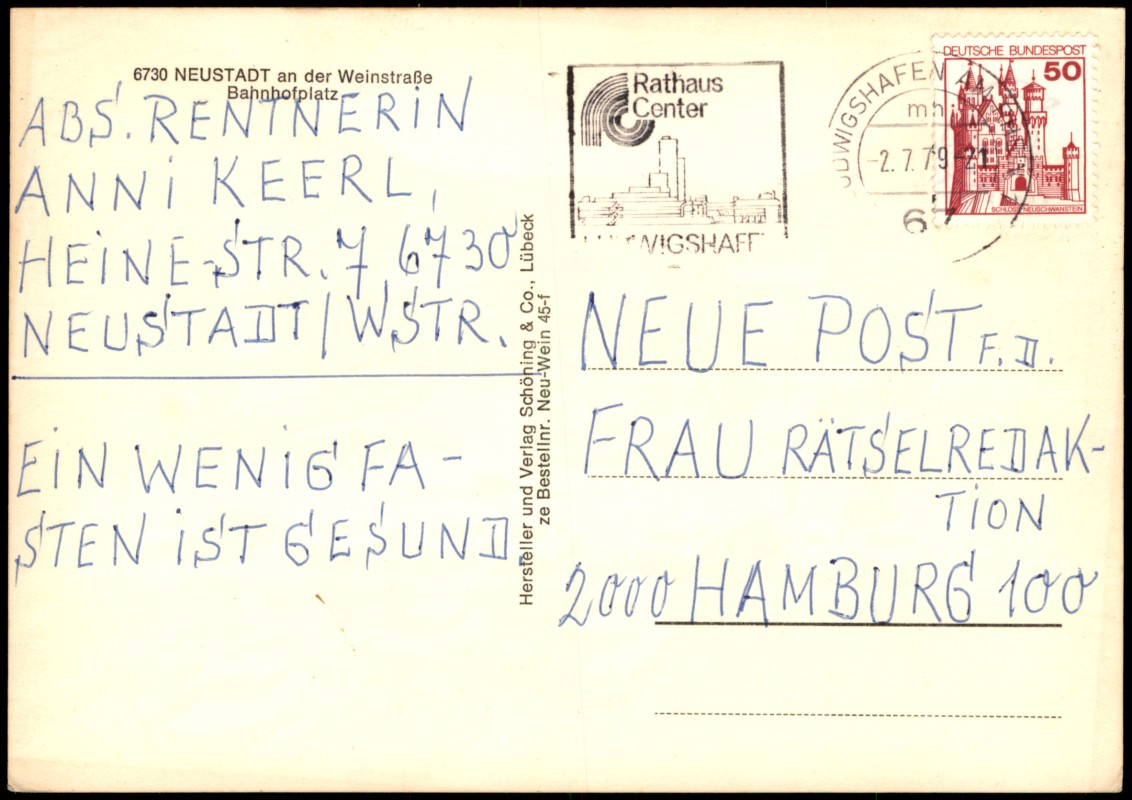 6730 NEUSTADT an der Weinstraße
Bahnhofplatz
ABS. RENTNERIN
ANNI KEERL,
HEINE-STR. 7, 6730
NEUSTADT/WSTR.
EIN WENIG FA-
STEN IST GESUND.
Hersteller und Verlag Schöning & Co., Lübeck
ze Bestellnr. Neu-Wein 45-f
Rathaus
Center
LUDWIGSHAFEN AM
mh
-2.7.79-21
67
DEUTSCHE BUNDESPOST
50
SCHLOSS NEUSCHWANSTEIN
NEUE POST F.D.
FRAU RÄTSELREDAK-
TION
2000 HAMBURG 100